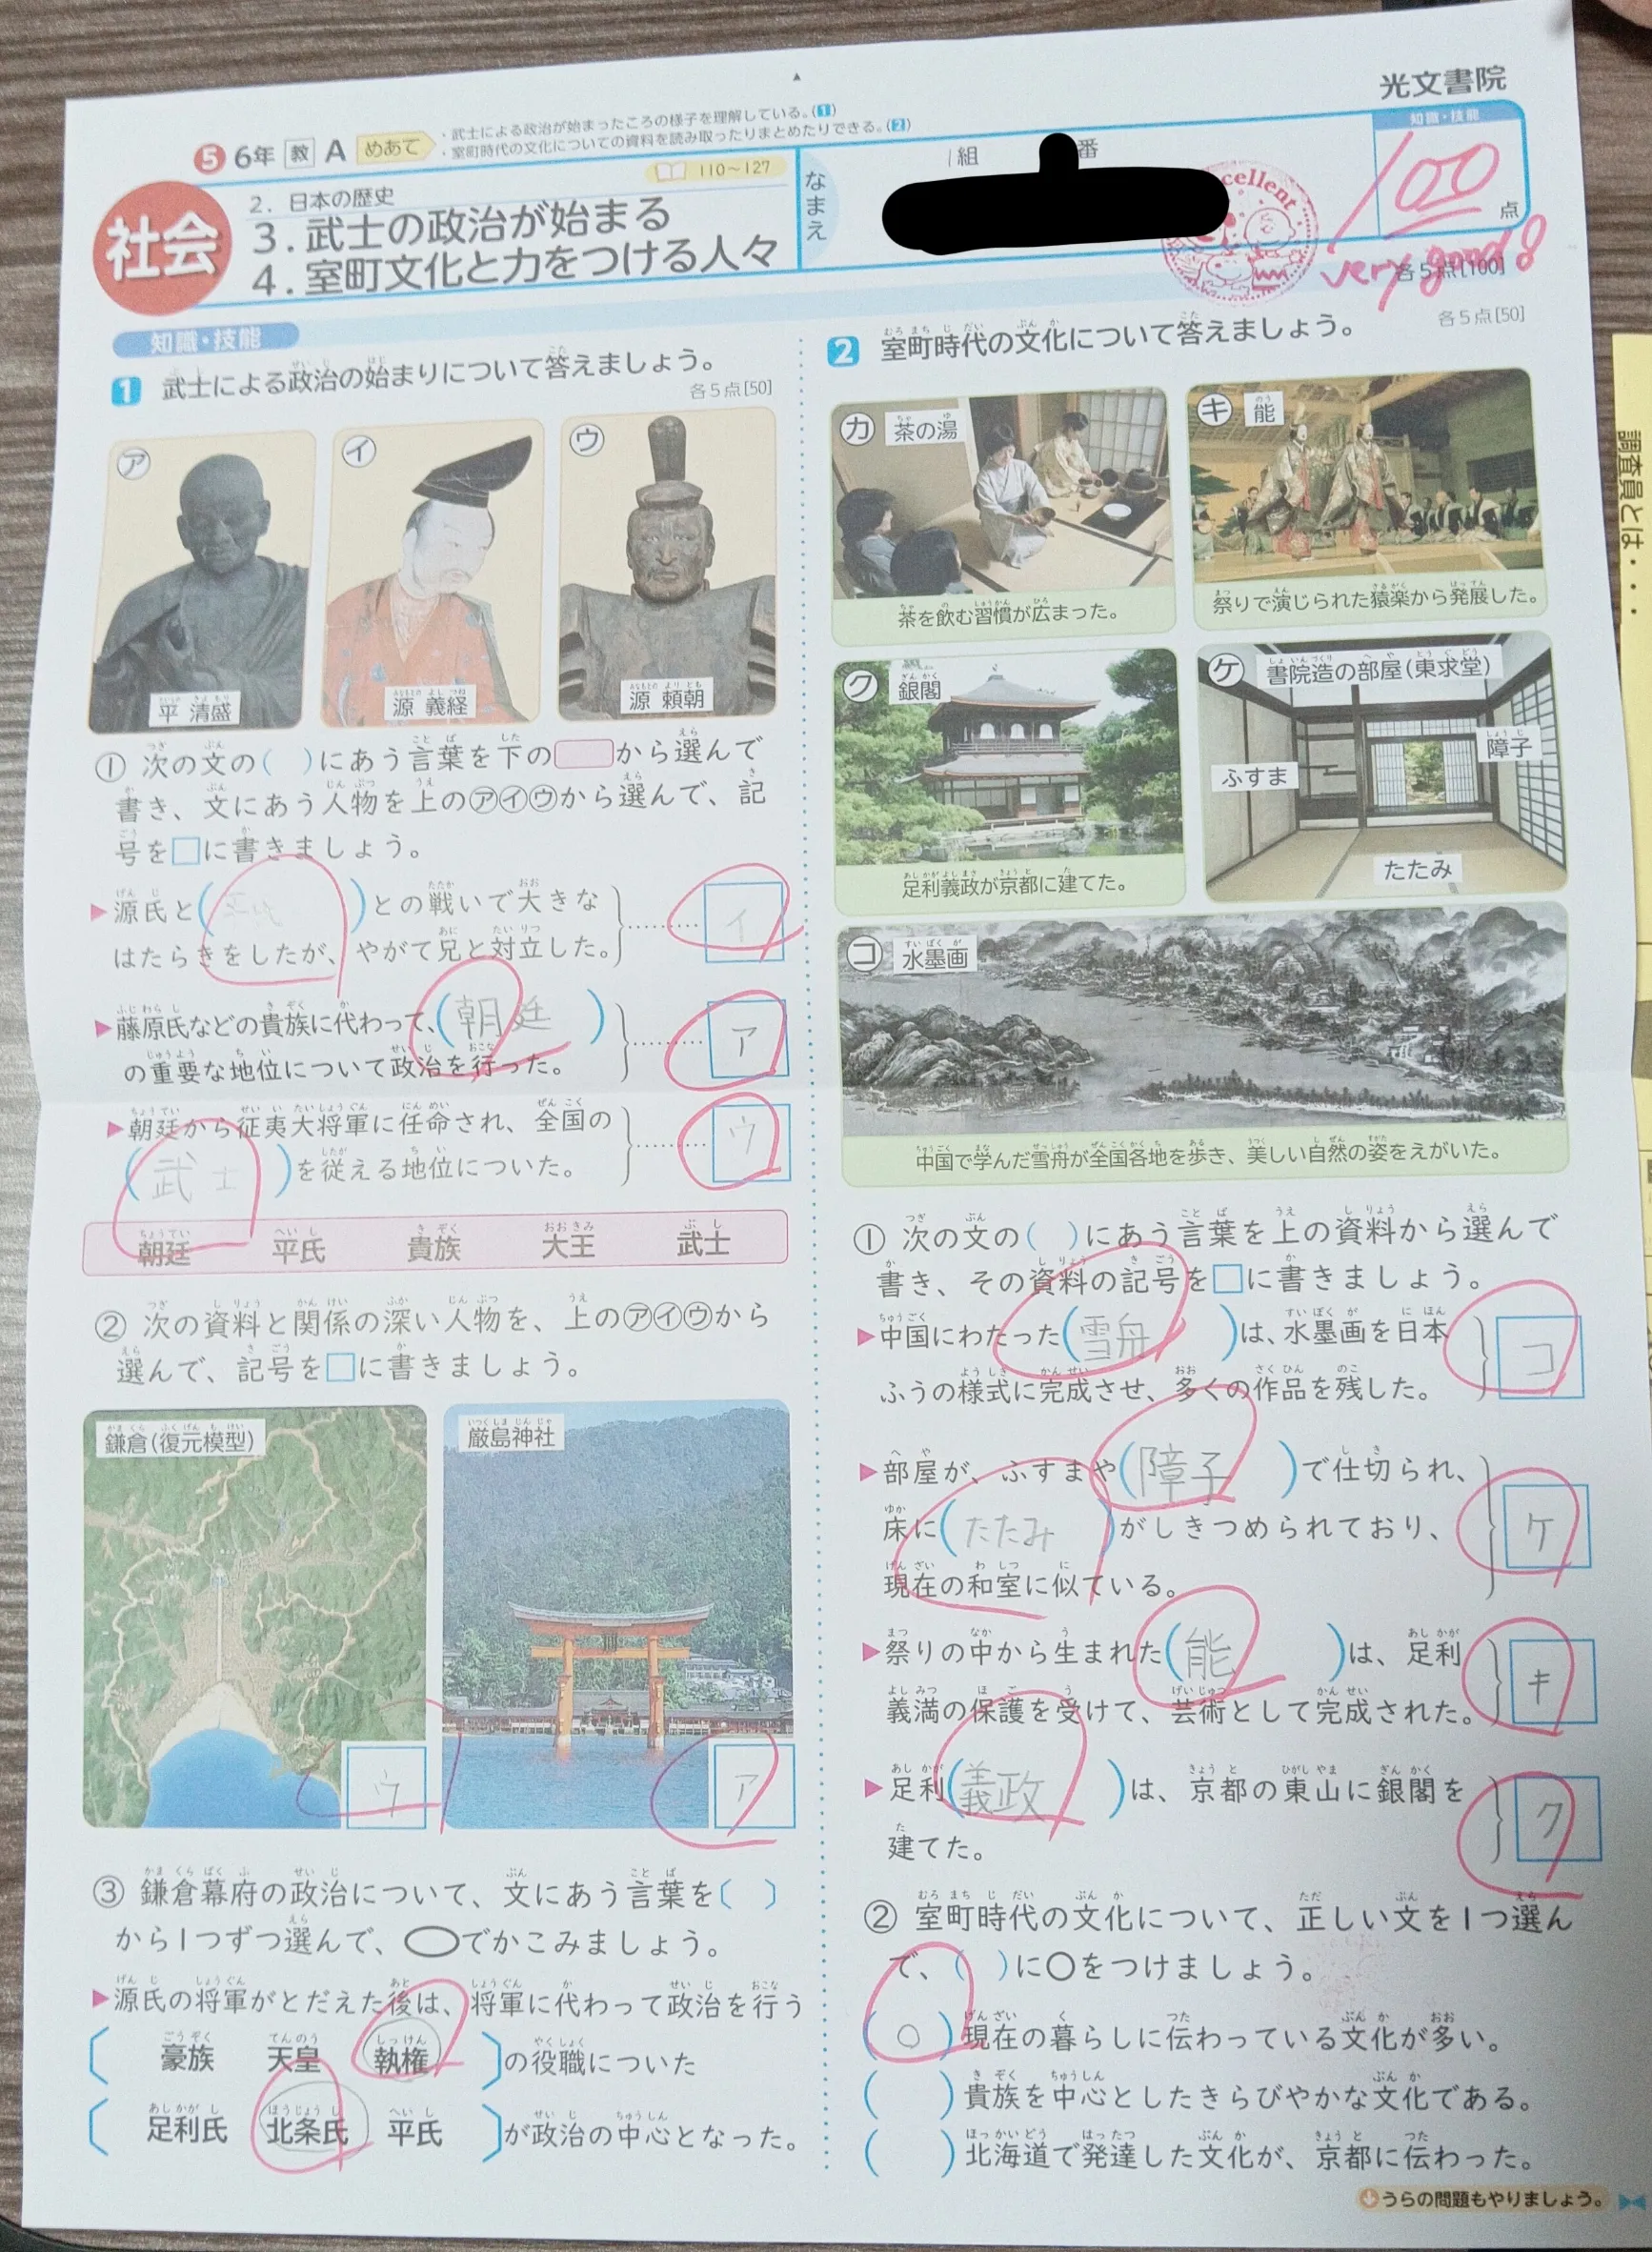 光文書院
・武士による政治が始まったころの様子を理解している。(1)
・室町時代の文化についての資料を読み取ったりまとめたりできる。(2)
5 6年 教 A めあて
110～127
社会
2. 日本の歴史
3. 武士の政治が始まる
4. 室町文化と力をつける人々
なまえ
1組 番
知識・技能
100点
very good!
各5点[100]
知識・技能
1 武士による政治の始まりについて答えましょう。
各5点[50]
ア 平 清盛
イ 源 義経
ウ 源 頼朝
① 次の文の( )にあう言葉を下の□から選んで
書き、文にあう人物を上のアイウから選んで、記
号を□に書きましょう。
▶源氏と(平氏)との戦いで大きな
はたらきをしたが、やがて兄と対立した。 イ
▶藤原氏などの貴族に代わって、(朝廷)
の重要な地位について政治を行った。 ア
▶朝廷から征夷大将軍に任命され、全国の
(武士)を従える地位についた。 ウ
朝廷 平氏 貴族 大王 武士
② 次の資料と関係の深い人物を、上のアイウから
選んで、記号を□に書きましょう。
鎌倉(復元模型) ウ
厳島神社 ア
③ 鎌倉幕府の政治について、文にあう言葉を( )
から1つずつ選んで、○でかこみましょう。
▶源氏の将軍がとだえた後は、将軍に代わって政治を行う
(豪族 天皇 執権)の役職についた
(足利氏 北条氏 平氏)が政治の中心となった。
2 室町時代の文化について答えましょう。
各5点[50]
カ 茶の湯
茶を飲む習慣が広まった。
キ 能
祭りで演じられた猿楽から発展した。
ク 銀閣
足利義政が京都に建てた。
ケ 書院造の部屋(東求堂)
障子
ふすま
たたみ
コ 水墨画
中国で学んだ雪舟が全国各地を歩き、美しい自然の姿をえがいた。
① 次の文の( )にあう言葉を上の資料から選んで
書き、その資料の記号を□に書きましょう。
▶中国にわたった(雪舟)は、水墨画を日本
ふうの様式に完成させ、多くの作品を残した。 コ
▶部屋が、ふすまや(障子)で仕切られ、
床に(たたみ)がしきつめられており、
現在の和室に似ている。 ケ
▶祭りの中から生まれた(能)は、足利
義満の保護を受けて、芸術として完成された。 キ
▶足利(義政)は、京都の東山に銀閣を
建てた。 ク
② 室町時代の文化について、正しい文を1つ選ん
で、( )に○をつけましょう。
(○)現在の暮らしに伝わっている文化が多い。
( )貴族を中心としたきらびやかな文化である。
( )北海道で発達した文化が、京都に伝わった。
うらの問題もやりましょう。
調査員とは・・・